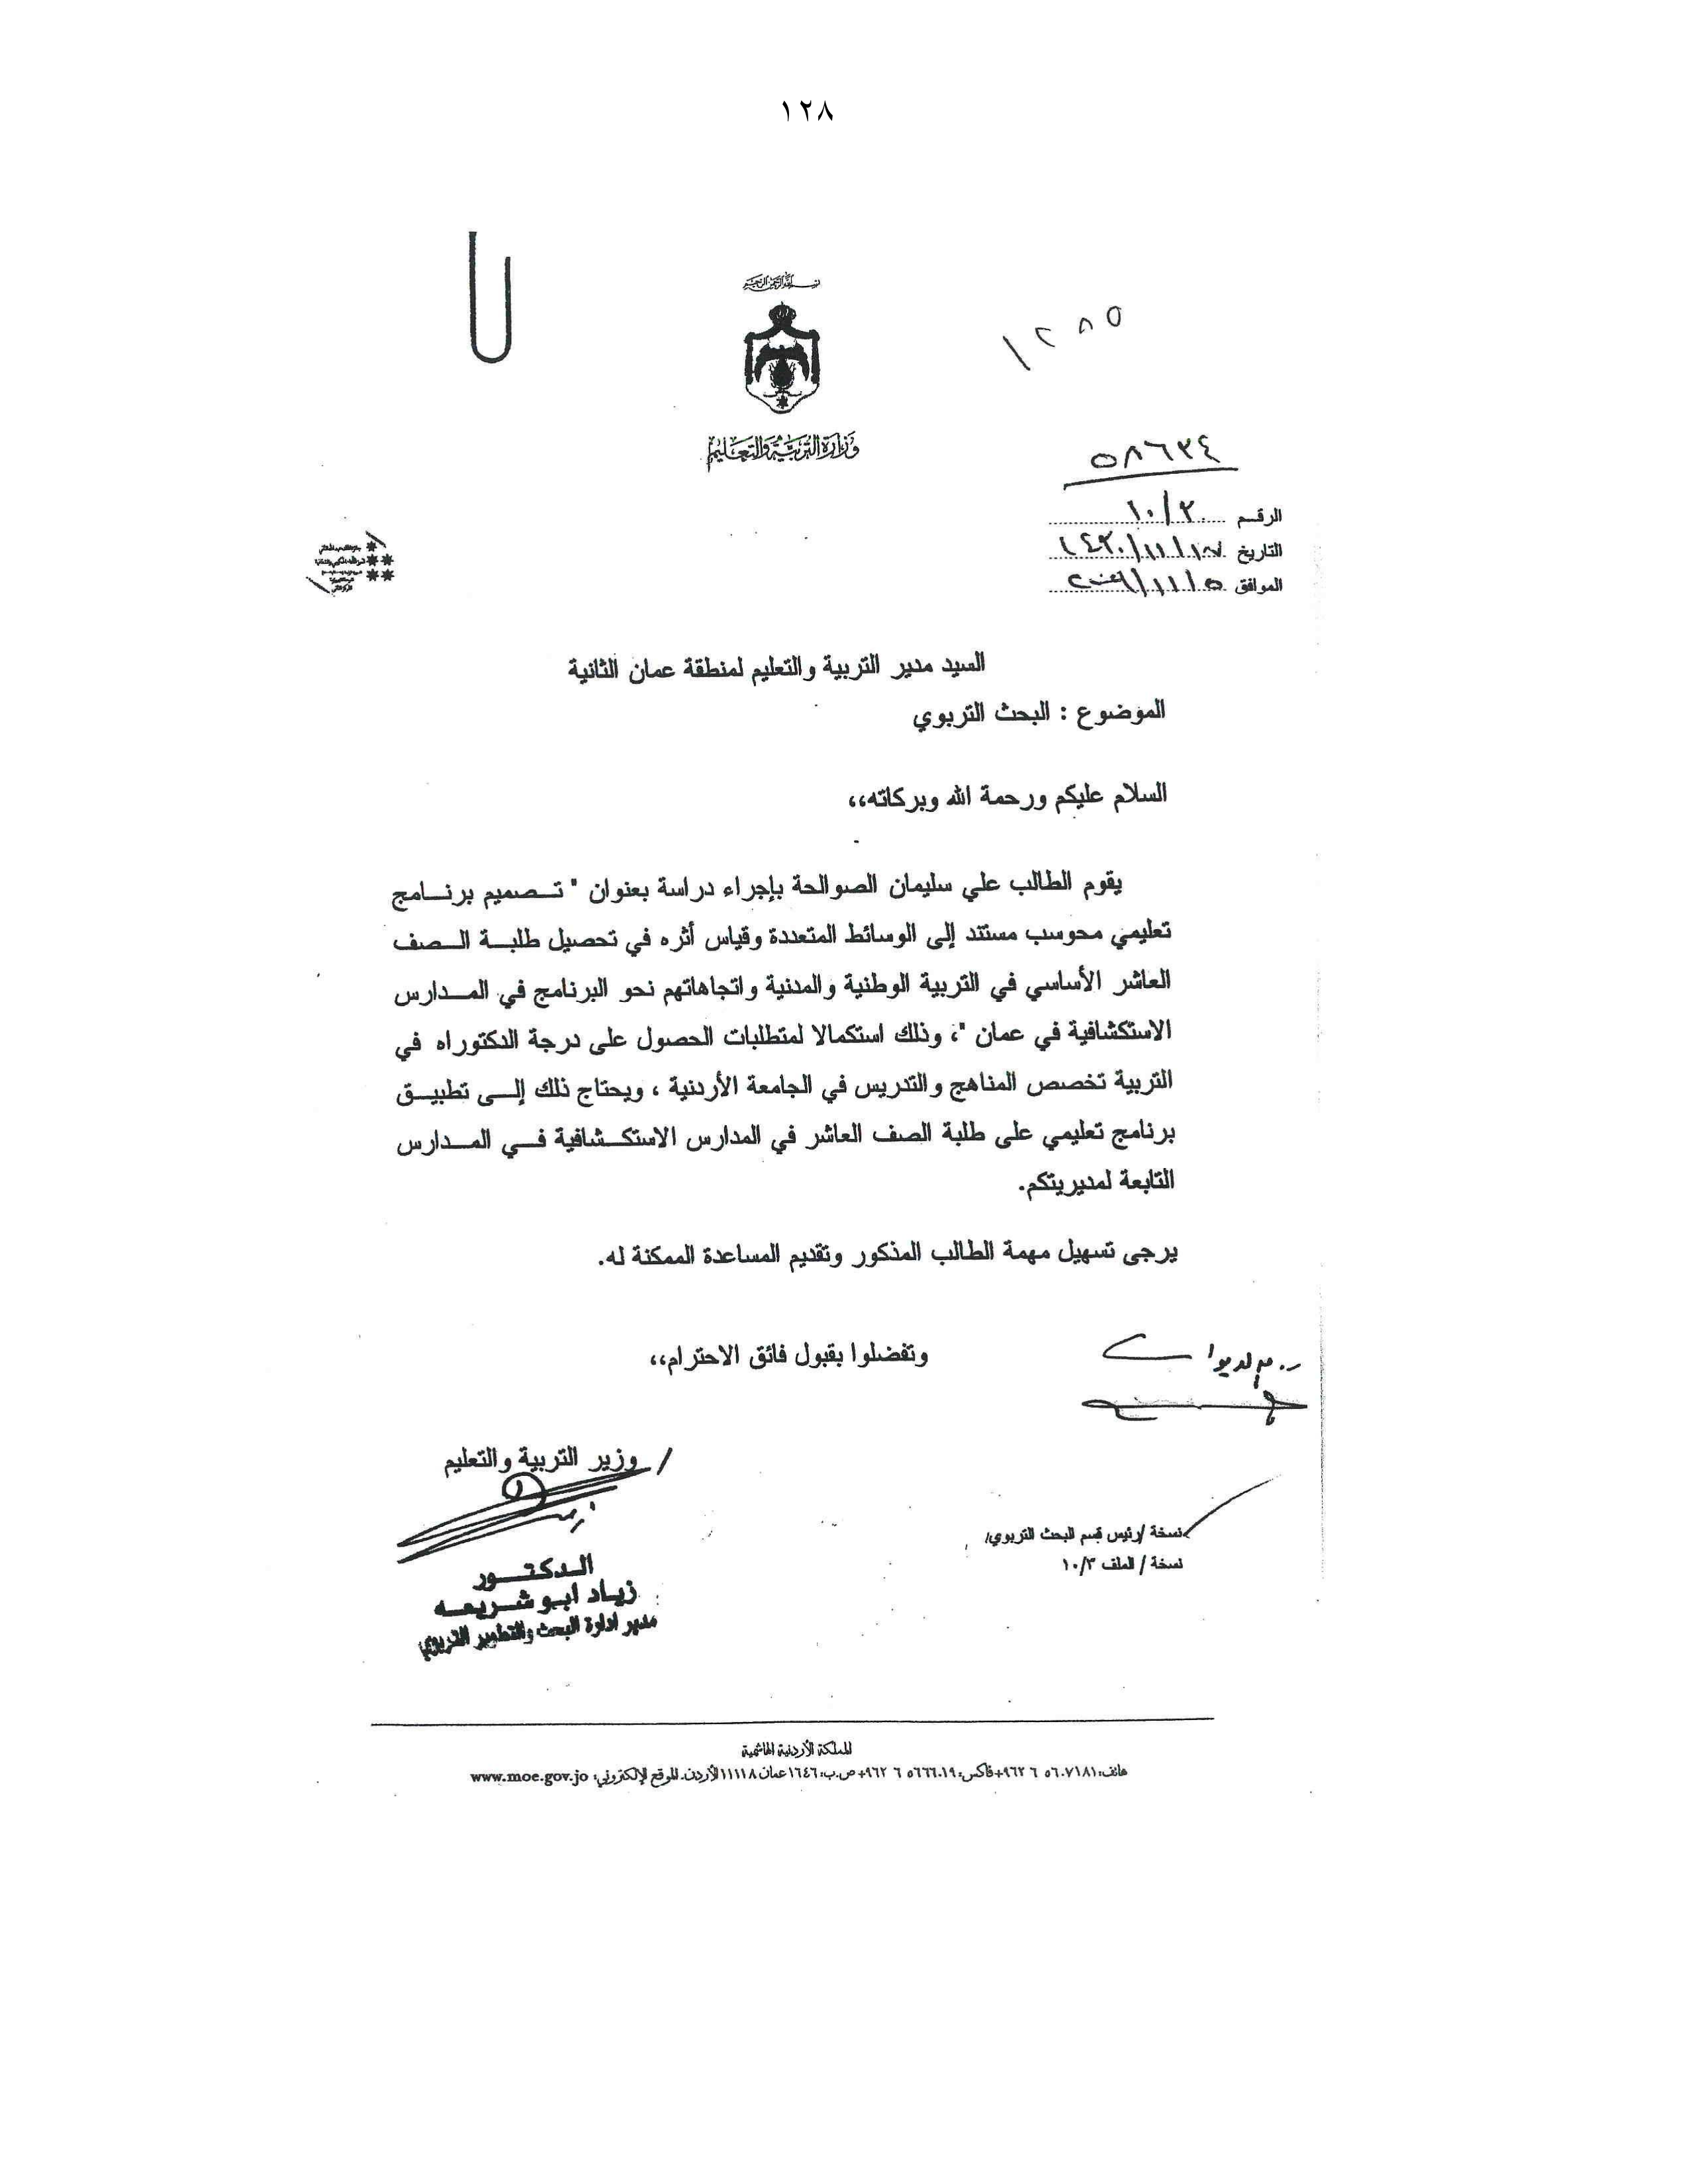 ١٢٨
بسم الله الرحمن الرحيم
١٢٨٥
وزارة التربية والتعليم
٥٨٦٣٤
الرقم ١٠/٣
التاريخ ١٤٣٠/١١/١٧
الموافق ٢٠٠٩/١١/٥
السيد مدير التربية والتعليم لمنطقة عمان الثانية
الموضوع : البحث التربوي
السلام عليكم ورحمة الله وبركاته،،
يقوم الطالب علي سليمان الصوالحة بإجراء دراسة بعنوان " تصميم برنامج
تعليمي محوسب مستند إلى الوسائط المتعددة وقياس أثره في تحصيل طلبة الصف
العاشر الأساسي في التربية الوطنية والمدنية واتجاهاتهم نحو البرنامج في المدارس
الاستكشافية في عمان "، وذلك استكمالا لمتطلبات الحصول على درجة الدكتوراه في
التربية تخصص المناهج والتدريس في الجامعة الأردنية ، ويحتاج ذلك إلى تطبيق
برنامج تعليمي على طلبة الصف العاشر في المدارس الاستكشافية في المدارس
التابعة لمديريتكم.
يرجى تسهيل مهمة الطالب المذكور وتقديم المساعدة الممكنة له.
وتفضلوا بقبول فائق الاحترام،،
/ وزير التربية والتعليم
الدكتور
زياد ابو شريعه
مدير ادارة البحث والتطوير التربوي
نسخة /رئيس قسم البحث التربوي/
نسخة / الملف ١٠/٣
المملكة الأردنية الهاشمية
هاتف: ٥٦٠٧١٨١ ٦ ٩٦٢+ فاكس: ٥٦٦٦٠١٩ ٦ ٩٦٢+ ص.ب: ١٦٤٦ عمان ١١١١٨ الأردن. الموقع الإلكتروني: www.moe.gov.jo